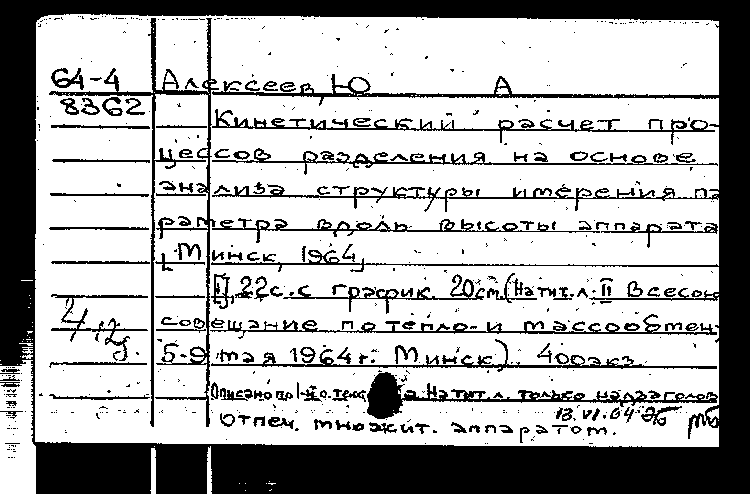 64-4 Алексеев, Ю А
8362 Кинетический расчет про-
цессов разделения на основе
анализа структуры имерения па
раметра вдоль высоты аппарата
[Минск, 1964]
[1], 22с. с график. 20см. (На тит. л. II Всесоюз
совещание по тепло- и массообмен,
5-9 мая 1964 г. Минск). 400экз.
Описано по 1-й с. текс а. На тит. л. только надзаголов
13.VI.64
Отпеч. множит. аппаратом.